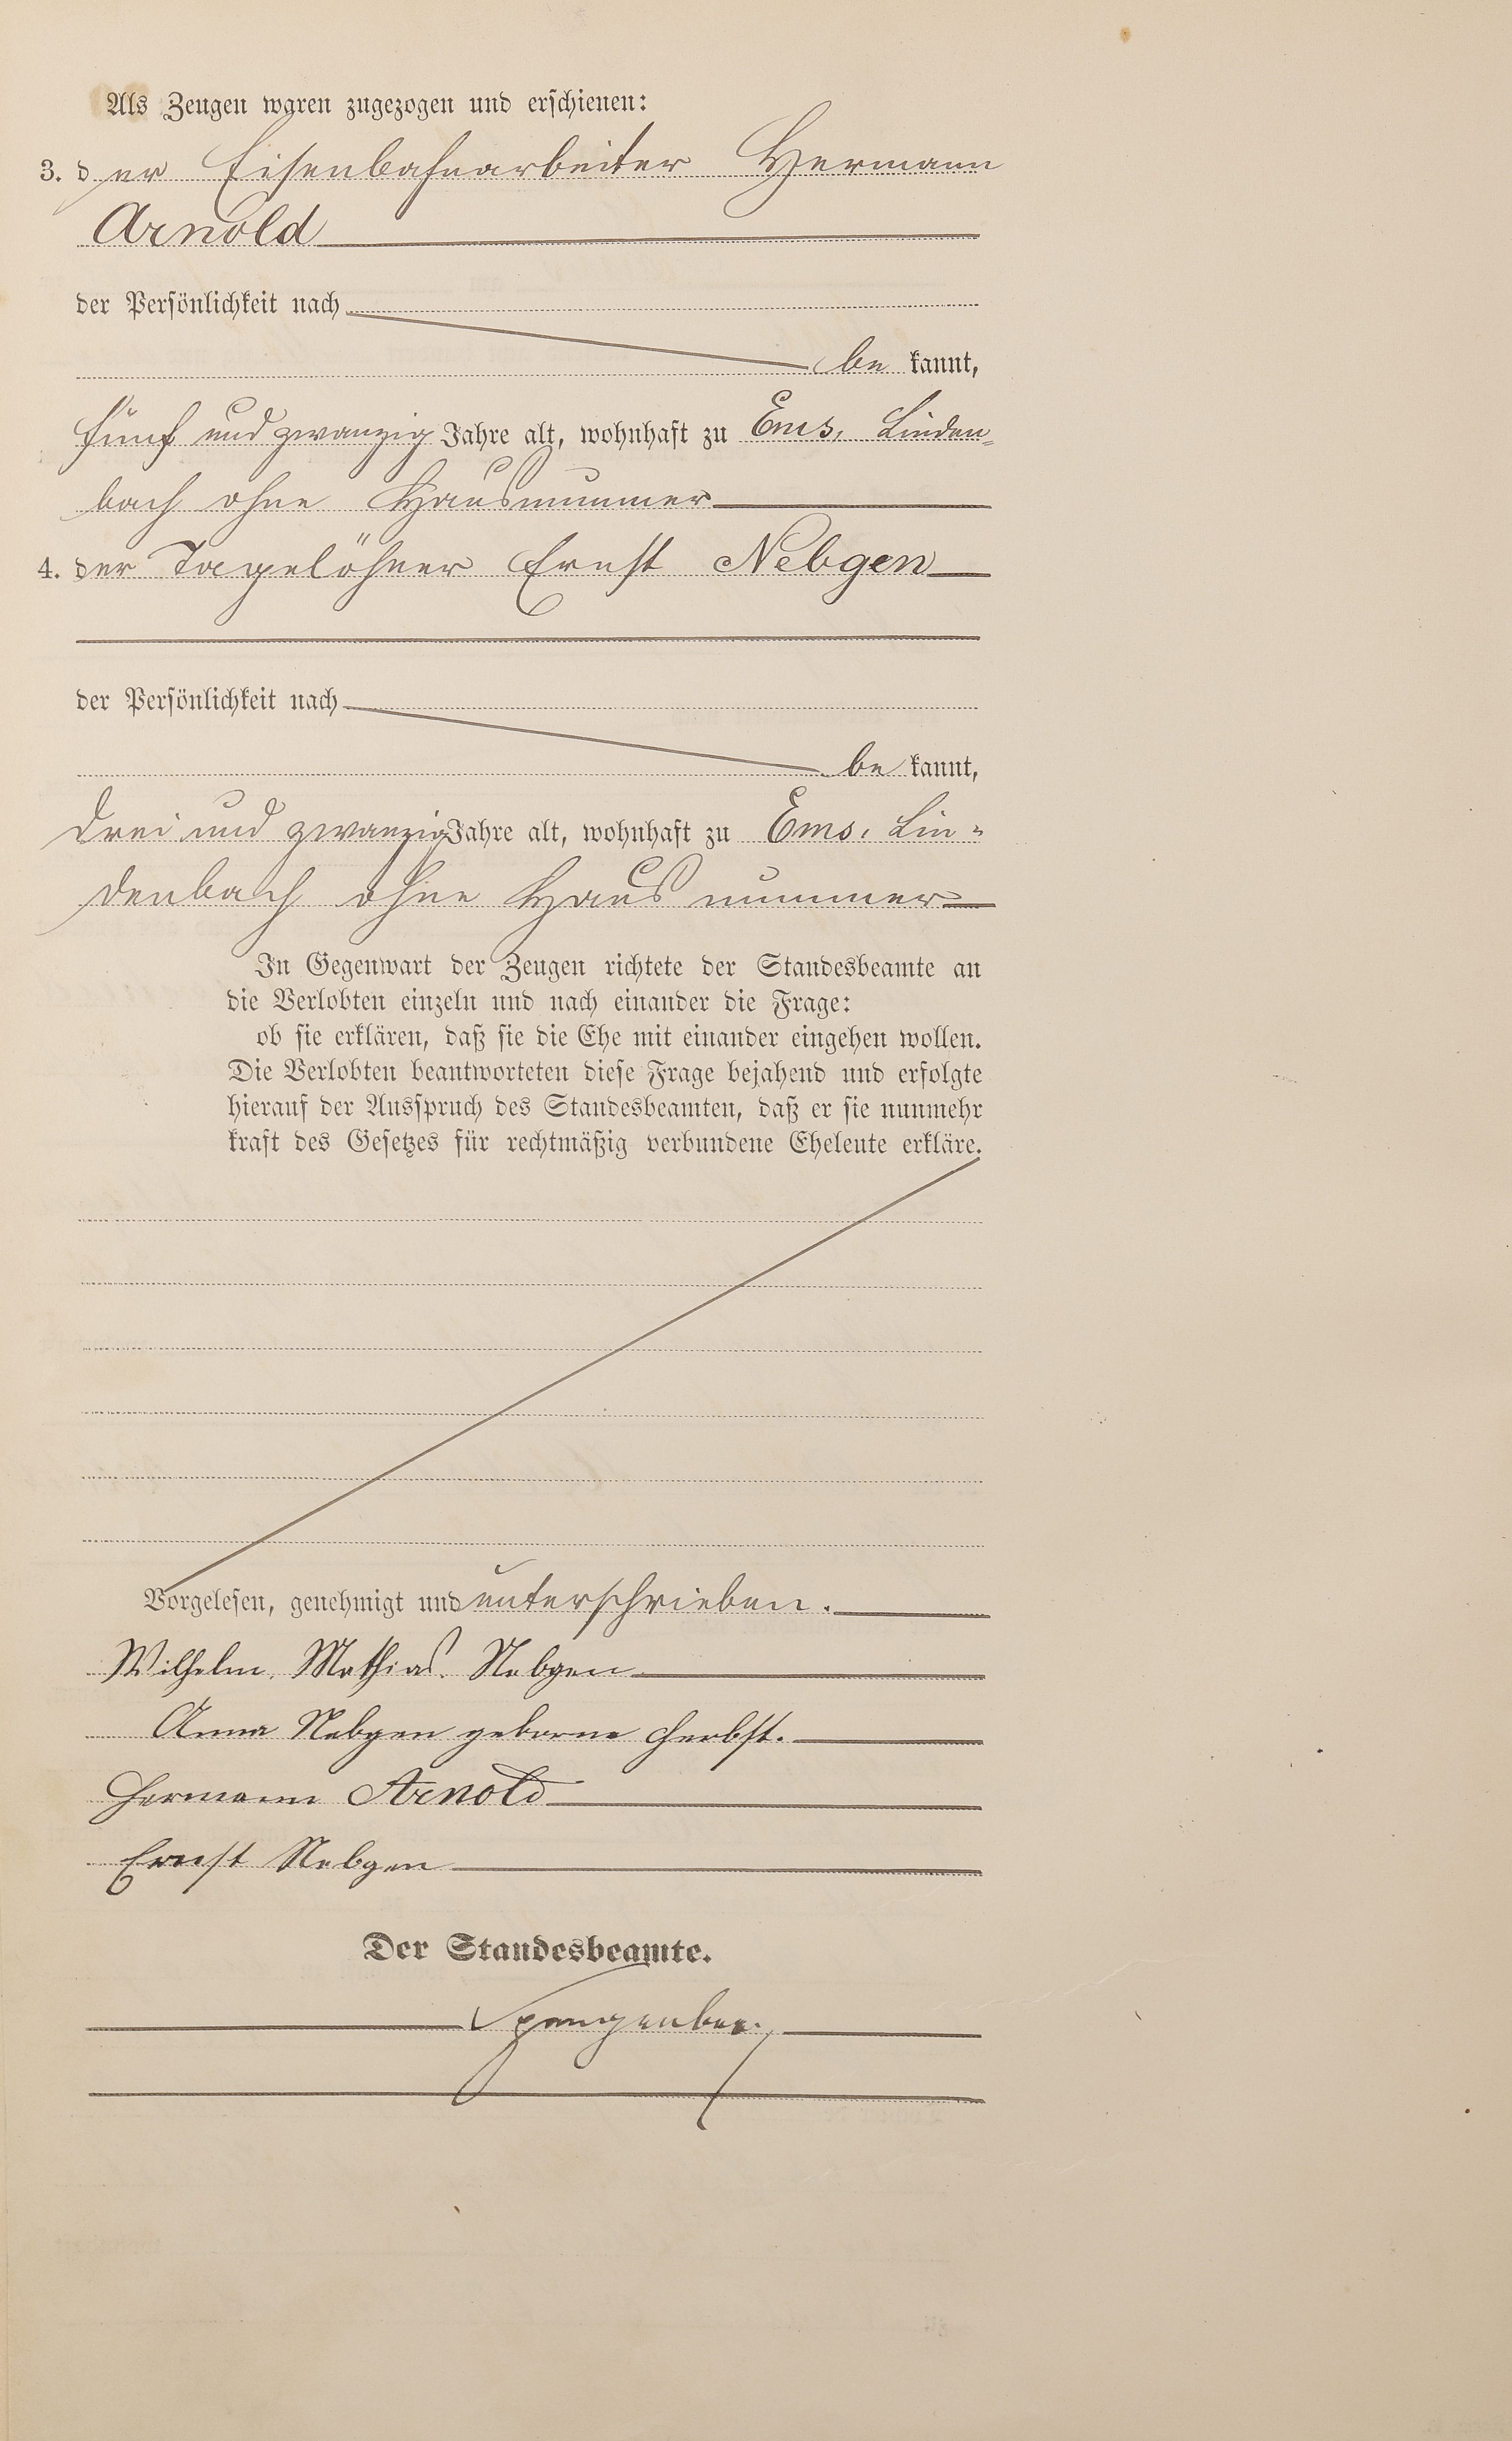 Als Zeugen waren zugezogen und erschienen:
3. der Eisenbahnarbeiter Hermann
Arnold
der Persönlichkeit nach
be kannt,
fünf und zwanzig Jahre alt, wohnhaft zu Ems, Linden-
bach ohne Hausnummer
4. der Tagelöhner Ernst Nebgen
der Persönlichkeit nach
be kannt,
drei und zwanzig Jahre alt, wohnhaft zu Ems, Lin-
denbach ohne Haus nummer
In Gegenwart der Zeugen richtete der Standesbeamte an
die Verlobten einzeln und nach einander die Frage:
ob sie erklären, daß sie die Ehe mit einander eingehen wollen.
Die Verlobten beantworteten diese Frage bejahend und erfolgte
hierauf der Ausspruch des Standesbeamten, daß er sie nunmehr
kraft des Gesetzes für rechtmäßig verbundene Eheleute erkläre.
Vorgelesen, genehmigt und unterschrieben.
Wilhelm Mathias Nebgen
Anna Nebgen geborne Herbst.
Hermann Arnold
Ernst Nebgen
Der Standesbeamte.
Spangenberg